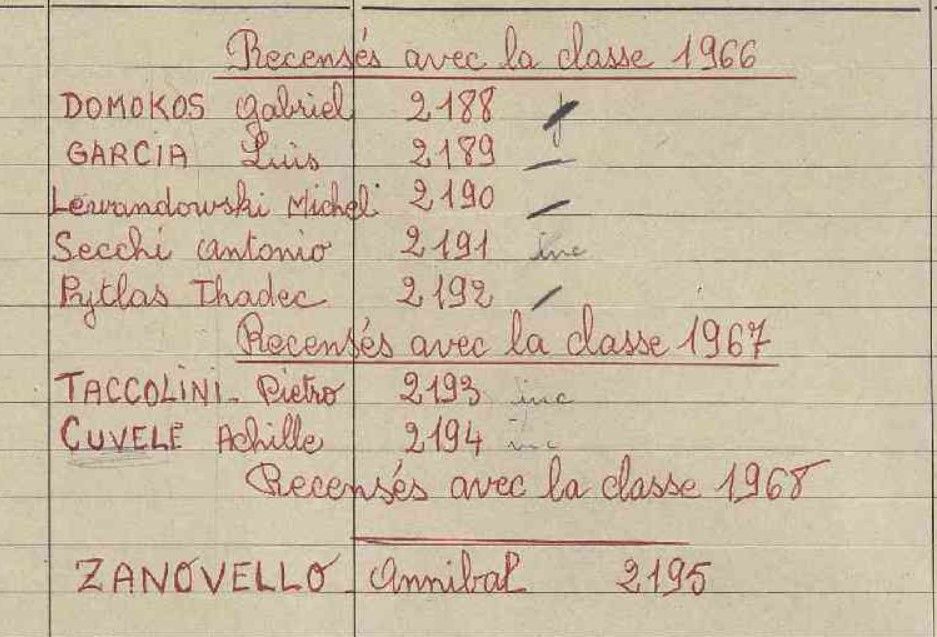 Recensés avec la classe 1966
DOMOKOS Gabriel 2188
GARCIA Luis 2189
Lewandowski Michel 2190
Secchi Antonio 2191 inc
Pytlas Thadec 2192
Recensés avec la classe 1967
TACCOLINI- Pietro 2193 inc
CUVELE Achille 2194 inc
Recensés avec la classe 1968
ZANOVELLO Annibal 2195